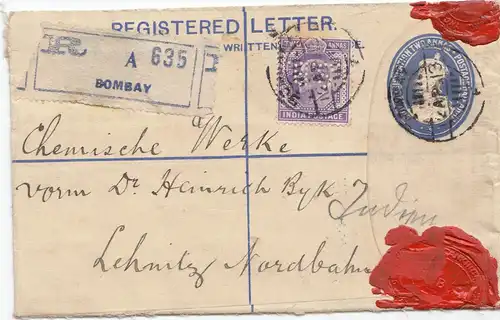 REGISTERED LETTER.
WRITTEN
R
A 635
BOMBAY
ANNAS
INDIA POSTAGE
Chemische Werke
vorm Dr Heinrich Byk
Indien
Lehnitz Nordbahn